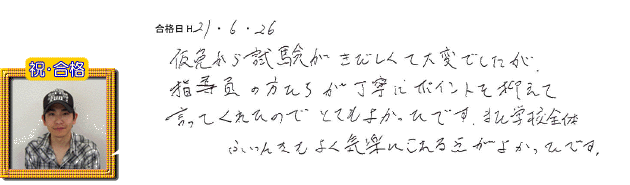 合格日 H.21・6・26
仮免から試験がきびしくて大変でしたが、
指導員の方たちが丁寧にポイントを抑えて
言ってくれたのでとてもよかったです。また学校全体
ふいんきもよく気楽にこれる点がよかったです。
祝・合格